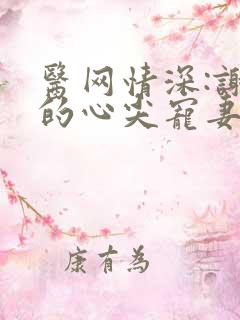 醫网情深:
的心尖寵妻
康有為